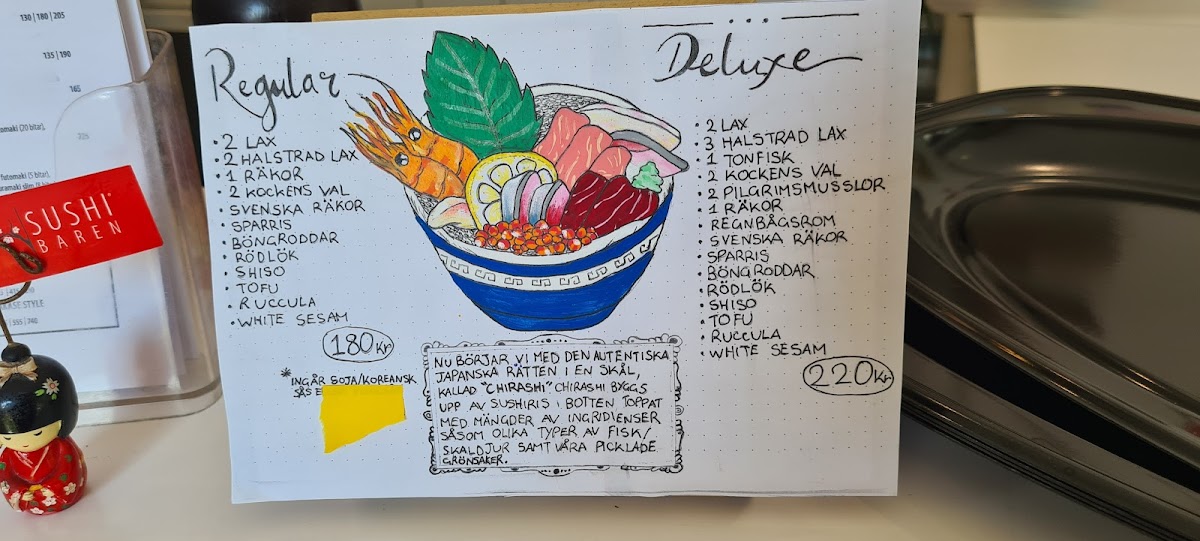 130 | 180 | 205
135 | 190
165
205
SUSHI
BAREN
Regular
• 2 LAX
• 2 HALSTRAD LAX
• 1 RÄKOR
• 2 KOCKENS VAL
• SVENSKA RÄKOR
• SPARRIS
• BÖNGRODDAR
• RÖDLÖK
• SHISO
• TOFU
• RUCCULA
• WHITE SESAM
180 Kr
* INGÅR SOJA/KOREANSK
SÅS
Deluxe
• 2 LAX
• 3 HALSTRAD LAX
• 1 TONFISK
• 2 KOCKENS VAL
• 2 PILGRIMSMUSSLOR
• 1 RÄKOR
• REGNBÅGSROM
• SVENSKA RÄKOR
• SPARRIS
• BÖNGRODDAR
• RÖDLÖK
• SHISO
• TOFU
• RUCCULA
• WHITE SESAM
220 Kr
NU BÖRJAR VI MED DEN AUTENTISKA
JAPANSKA RÄTTEN I EN SKÅL,
KALLAD "CHIRASHI" CHIRASHI BYGGS
UPP AV SUSHIRIS I BOTTEN TOPPAT
MED MÄNGDER AV INGRIDIENSER
SÅSOM OLIKA TYPER AV FISK/
SKALDJUR SAMT VÅRA PICKLADE
GRÖNSAKER.